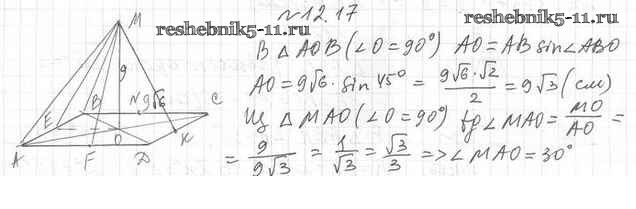 №12.17
reshebnik5-11.ru
reshebnik5-11.ru
M
9
B
N
9√6
C
E
O
K
A
F
D
В △ AOB (∠O=90°) AO=AB sin∠ABO
AO=9√6·sin 45° = 9√6·√2/2 = 9√3 (см)
Из △ MAO (∠O=90°) tg∠MAO= MO/AO =
= 9/9√3 = 1/√3 = √3/3 => ∠MAO=30°